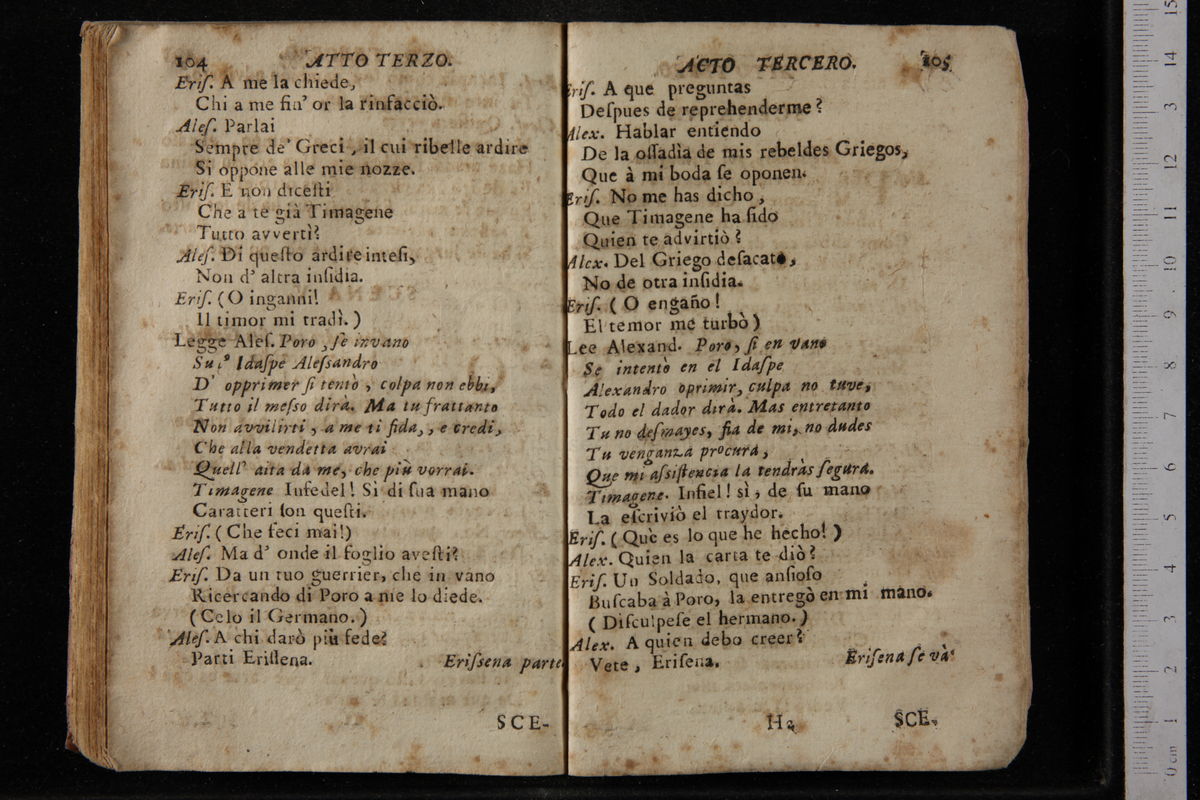 104 ATTO TERZO.
Eriſ. A me la chiede,
Chi a me fin' or la rinfacciò.
Aleſ. Parlai
Sempre de' Greci, il cui ribelle ardire
Si oppone alle mie nozze.
Eriſ. E non diceſti
Che a te già Timagene
Tutto avvertì?
Aleſ. Di queſto ardire inteſi,
Non d' altra inſidia.
Eriſ. (O inganni!
Il timor mi tradì.)
Legge Aleſ. Poro, ſe invano
Su l' Idaſpe Aleſsandro
D' opprimer ſi tentò, colpa non ebbi,
Tutto il meſso dirà. Ma tu frattanto
Non avvilirti, a me ti fida,, e credi,
Che alla vendetta avrai
Quell' aita da me, che più vorrai.
Timagene Infedel! Si di ſua mano
Caratteri ſon queſti.
Eriſ. (Che feci mai!)
Aleſ. Ma d' onde il foglio aveſti?
Eriſ. Da un tuo guerrier, che in vano
Ricercando di Poro a me lo diede.
(Celo il Germano.)
Aleſ. A chi darò più fede?
Parti Eriſſena. Eriſsena parte.
SCE-
ACTO TERCERO. 105
Eriſ. A que preguntas
Deſpues de reprehenderme?
Alex. Hablar entiendo
De la oſſadìa de mis rebeldes Griegos,
Que à mi boda ſe oponen.
Eriſ. No me has dicho,
Que Timagene ha ſido
Quien te advirtiò?
Alex. Del Griego deſacato,
No de otra inſidia.
Eriſ. (O engaño!
El temor me turbò)
Lee Alexand. Poro, ſi en vano
Se intentò en el Idaſpe
Alexandro oprimir, culpa no tuve,
Todo el dador dirà. Mas entretanto
Tu no deſmayes, fia de mi, no dudes
Tu venganza procura,
Que mi aſsiſtencia la tendràs ſegura.
Timagene. Infiel! sì, de ſu mano
La eſcriviò el traydor.
Eriſ. (Què es lo que he hecho!)
Alex. Quien la carta te diò?
Eriſ. Un Soldado, que anſioſo
Buſcaba à Poro, la entregò en mi mano.
(Diſculpeſe el hermano.)
Alex. A quien debo creer?
Vete, Eriſena. Eriſena ſe và.
H2 SCE.
0 cm 1 2 3 4 5 6 7 8 9 10 11 12 13 14 15